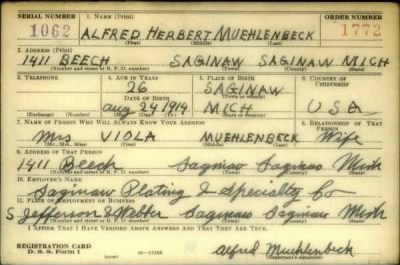 SERIAL NUMBER 1. NAME (Print) ORDER NUMBER
1062 ALFRED HERBERT MUEHLENBECK 1772
(First) (Middle) (Last)
2. ADDRESS (Print)
1411 BEECH SAGINAW SAGINAW MICH
(Number and street or R. F. D. number) (Town) (County) (State)
3. TELEPHONE 4. AGE IN YEARS 5. PLACE OF BIRTH 6. COUNTRY OF CITIZENSHIP
26 SAGINAW
DATE OF BIRTH
Aug 24 1914 MICH USA
(Exchange) (Number) (Mo.) (Day) (Yr.) (State or country)
7. NAME OF PERSON WHO WILL ALWAYS KNOW YOUR ADDRESS 8. RELATIONSHIP OF THAT PERSON
Mrs VIOLA MUEHLENBECK Wife
(Mr., Mrs., Miss) (First) (Middle) (Last)
9. ADDRESS OF THAT PERSON
1411 Beech Saginaw Saginaw Mich
(Number and street or R. F. D. number) (Town) (County) (State)
10. EMPLOYER'S NAME
Saginaw Plating & Specialty Co
11. PLACE OF EMPLOYMENT OR BUSINESS
S Jefferson & Webber Saginaw Saginaw Mich
(Number and street or R. F. D. number) (Town) (County) (State)
I AFFIRM THAT I HAVE VERIFIED ABOVE ANSWERS AND THAT THEY ARE TRUE.
REGISTRATION CARD
D. S. S. Form 1 (over) 16-17105 Alfred Muehlenbeck
(Registrant's signature)